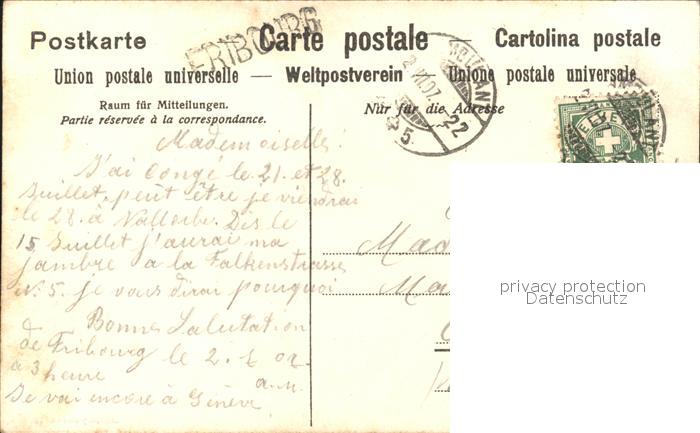 Postkarte — Carte postale — Cartolina postale
FRIBOURG
Union postale universelle — Weltpostverein — Unione postale universale
Raum für Mitteilungen.
Partie réservée à la correspondance.
Nur für die Adresse
AMBULANT
22
HELVETIA
Mademoiselle!
J'ai Congé le 21. et 28.
Juillet, peut être je viendrai
le 28. à Vallorbe. Dès le
15 Juillet j'aurai ma
jambre a la Falkenstrasse
N: 5. je vous dirai pourquoi
Bonne Salutation
de Fribourg le 2.
a 3 heure
Je vai encore à Genève
Mad
Ma
privacy protection
Datenschutz